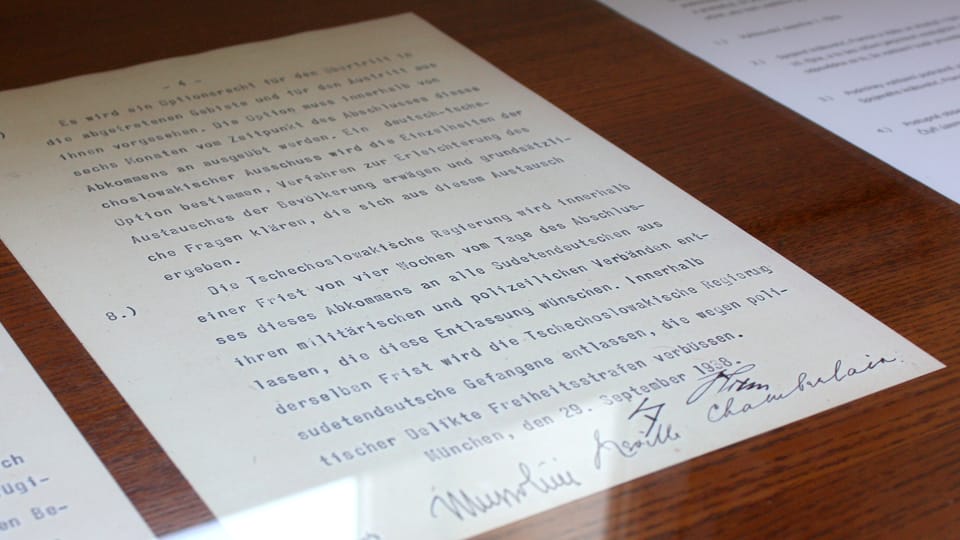 - 4 -
)
Es wird ein Optionsrecht für den Übertritt in
die abgetretenen Gebiete und für den Austritt aus
ihnen vorgesehen. Die Option muss innerhalb von
sechs Monaten vom Zeitpunkt des Abschlusses dieses
Abkommens an ausgeübt werden. Ein deutsch-tsche-
choslowakischer Ausschuss wird die Einzelheiten der
Option bestimmen, Verfahren zur Erleichterung des
Austausches der Bevölkerung erwägen und grundsätzli-
che Fragen klären, die sich aus diesem Austausch
ergeben.
8.) Die Tschechoslowakische Regierung wird innerhalb
einer Frist von vier Wochen vom Tage des Abschlus-
ses dieses Abkommens an alle Sudetendeutschen aus
ihren militärischen und polizeilichen Verbänden ent-
lassen, die diese Entlassung wünschen. Innerhalb
derselben Frist wird die Tschechoslowakische Regierung
sudetendeutsche Gefangene entlassen, die wegen poli-
tischer Delikte Freiheitsstrafen verbüssen.
München, den 29. September 1938.
Mussolini
Neville Chamberlain
ch
rugi-
en Be-
1.)
2.)
3.)
4.)